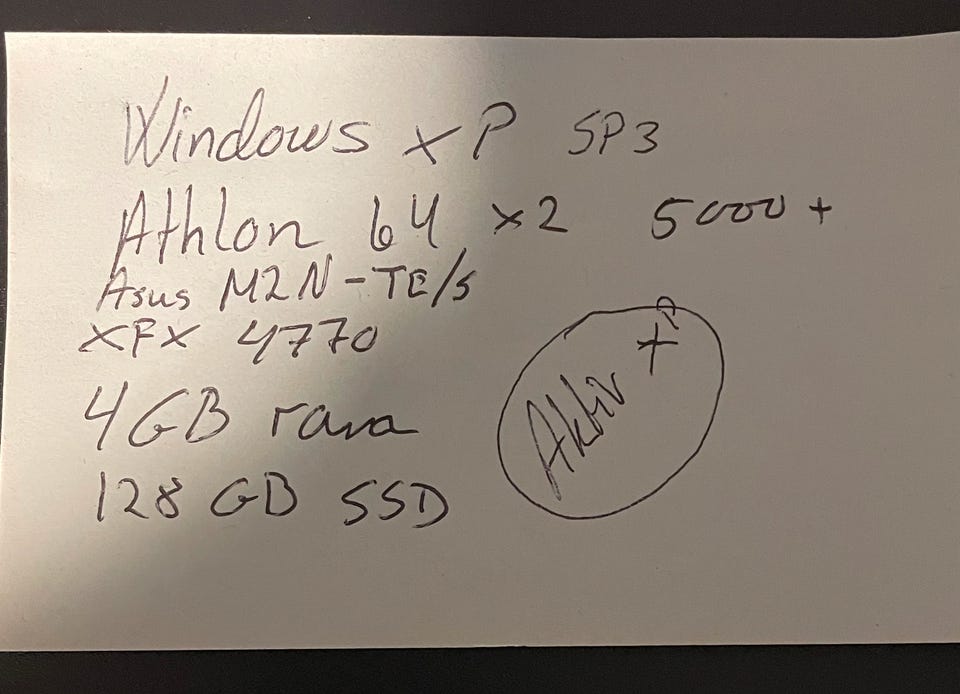 Windows XP SP3
Athlon 64 x2 5000+
Asus M2N-TE/S
XFX 4770
4GB ram
128 GB SSD
Aktiv